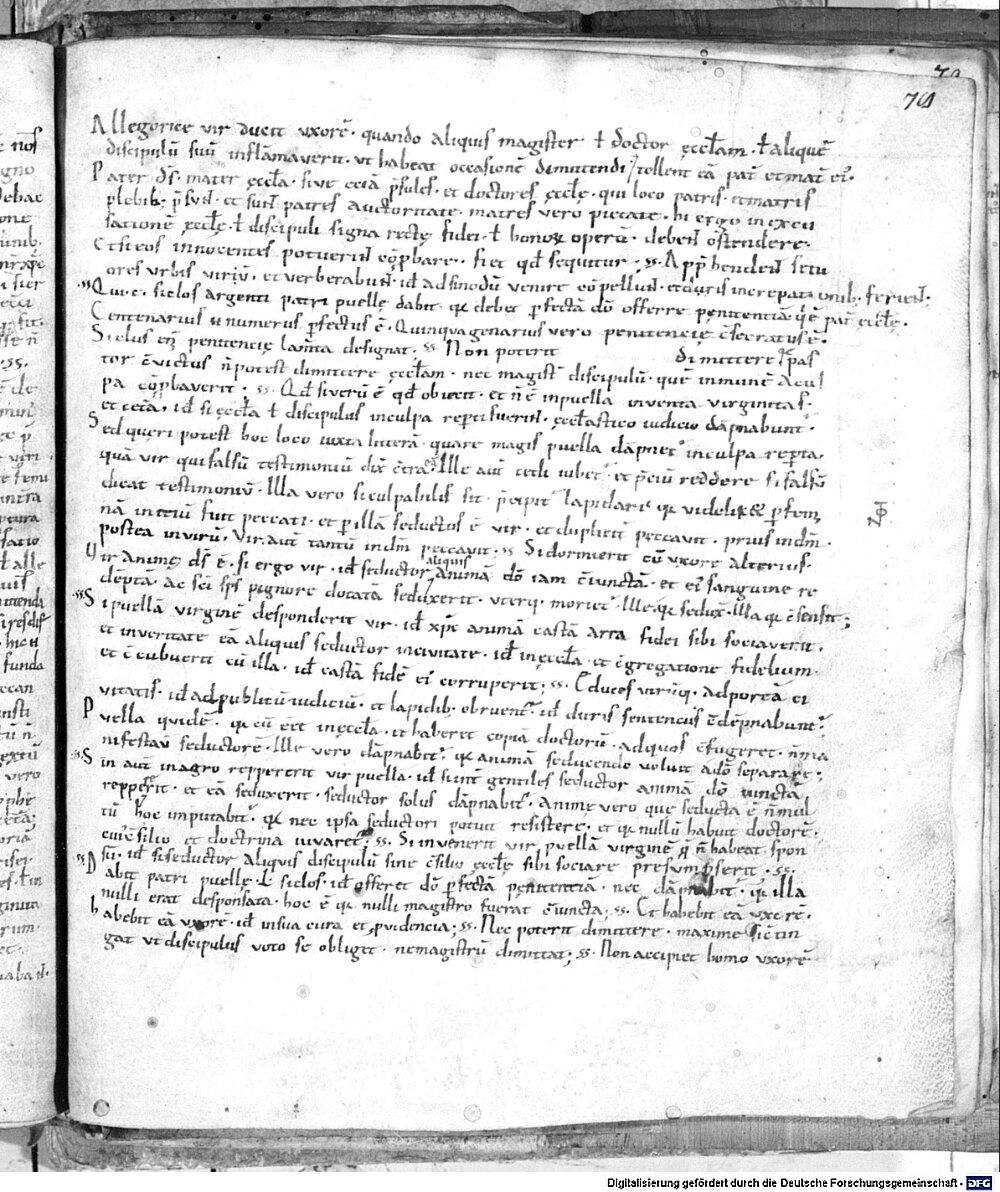 70
70
Allegorice vir ducit uxorē· quando aliquis magister ł doctor ęcclam· ł aliquē
discipulū suū inflāmaverit· ut habeat occasionē dimittendi / tollent eā pat̄ et mat̄ ei᷒·
Pater ds̄· mater ęccla· sive etiā p̄sules· et doctores ęcclę· qui loco patris· et matris
plebib; p̄sunt· et sunt patres auctoritate· matres vero pietate· hi ergo in excu
sationē ęcclę· ł discipuli signa rectę fidei· ł bonoꝝ operū· debent ostendere·
Et si eos innocentes potuerint cōpbare· fiet qd̄ sequitur; ss· App̄hendent seni
ores urbis virū· et verberabunt· id ad sinodū venire cōpellunt· et duris increpationib· ferient·
Qui· c· siclos argenti patri puellę dabit· qa debet pfectā dō offerre penitentiā qē pat̄ ęcclę·
Centenarius n numerus pfectus ē· Quinquagenarius vero penitencię c̄secratus ē·
Siclus enī penitencię lam̄ta designat· ss· Non poterit dimittere / pas
tor c̄victus n̄ potest dimittere ęcclam· nec magist̄ discipulū· quē inmunē a cul
pa cōpbaverit· ss· Qd̄ si verū ē qd̄ obicit· et n̄ ē in puella inventa virginitas·
et cetā· id si ęccla ł discipulus in culpa repti fuerint· ęcclastico iudicio dāpnabunt·
Sed queri potest hoc loco iuxta litterā· quare magis puella dāpnet᷒ in culpa repta·
quā vir qui falsū testimoniū dix̄ c̄tra eā· Ille aut̄ cedi iubet᷒· et p̄ciū reddere si falsū
dicat testimoniū· Illa vero si culpabilis sit· p̄cipit᷒ lapidari· qa videlicet
nā initiū fuit peccati· et p illā seductus ē vir· et dupliciť peccavit· prius in dm̄·
postea in virū· Vir aut̄ tantū in dm̄ peccavit· ss· Si dormierit cū uxore alterius·
Vir animę ds̄ ē· si ergo vir· id seductor aliquis animā dō iam c̄iunctā· et ei᷒ sanguine re
dēptā· ac sc̄i sps̄ pignore dotata seduxerit· uterq; moriet᷒· Ille qa sedux̄· Illa qa c̄sensit;
Si puellā virginē desponderit vir· id xp̄c animā castā arra fidei sibi sociaverit·
et inveritate eā aliquis seductor in civitate· id in ęccla· et c̄gregatione fidelium·
et c̄cubuerit cū illa· id castā fidē ei᷒ corruperit; ss· Educes utrūq; ad portā ci
vitatis· id ad publicū iudiciū· et lapidib; obruent᷒· id duris sentenciis c̄dēpnabunt᷒·
Puella quidē· qa cū eēt in ęccla· et haberet copiā doctorū· ad quos c̄fugeret· n̄ ma
nifestavit seductorē· Ille vero dāpnabit᷒· qa animā seducendo voluit a dō separare;
Sin aut̄ in agro reppererit vir puella· id si int̄ gentiles seductor animā dō iunctā
repperit· et eā seduxerit· seductor solus dāpnabit᷒· Animę vero que seducta ē n̄ mul
tū hoc imputabit᷒· qa nec ipsa seductori potuit resistere· et qa nullū habuit doctorē·
cui᷒ c̄silio et doctrina iuvaret᷒; ss· Si invenerit vir puellā virginē q n̄ habeat spon
sū· id si seductor aliquis discipulū sine c̄silio ęcclę sibi sociare presumpserit· ss·
Dabit patri puellę· L· siclos· id offeret dō pfectā penitentiā· nec dāpnabit᷒· qa illa
nulli erat desponsata· hoc ē qa nulli magistro fuerat c̄iuncta; ss· Et habebit eā uxorē·
habebit eā uxorē· id in sua cura et pvidencia; ss· Nec poterit dimittere· maxime si c̄tin
gat ut discipulus voto se obliget· ne magistrū dimittat; ss· Non accipiet homo uxorē
Digitalisierung gefördert durch die Deutsche Forschungsgemeinschaft - DFG